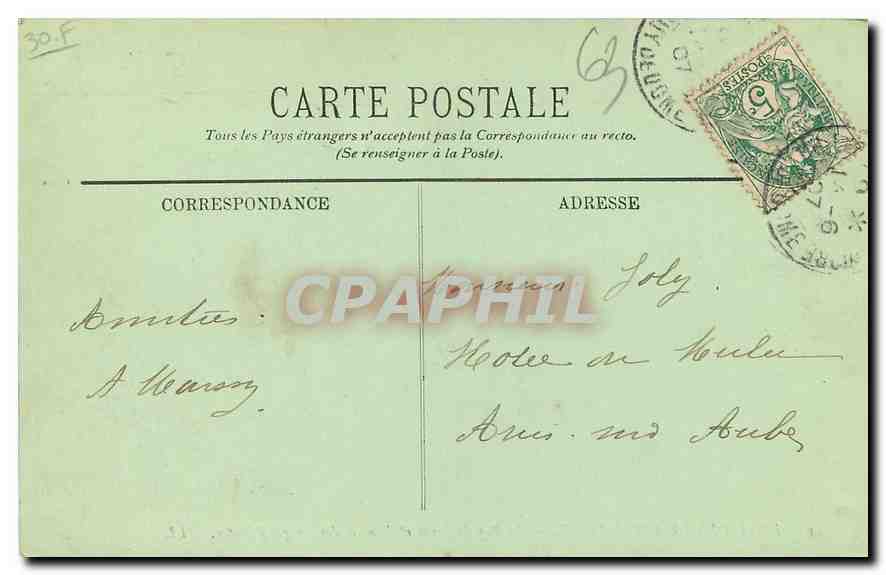 30.F
63
CARTE POSTALE
Tous les Pays étrangers n'acceptent pas la Correspondance au recto.
(Se renseigner à la Poste).
POSTES
5c
CORRESPONDANCE
ADRESSE
CPAPHIL
Amitiés.
A
Monsieur Joly
Hotel du
Aube
PUY DE DOME
07